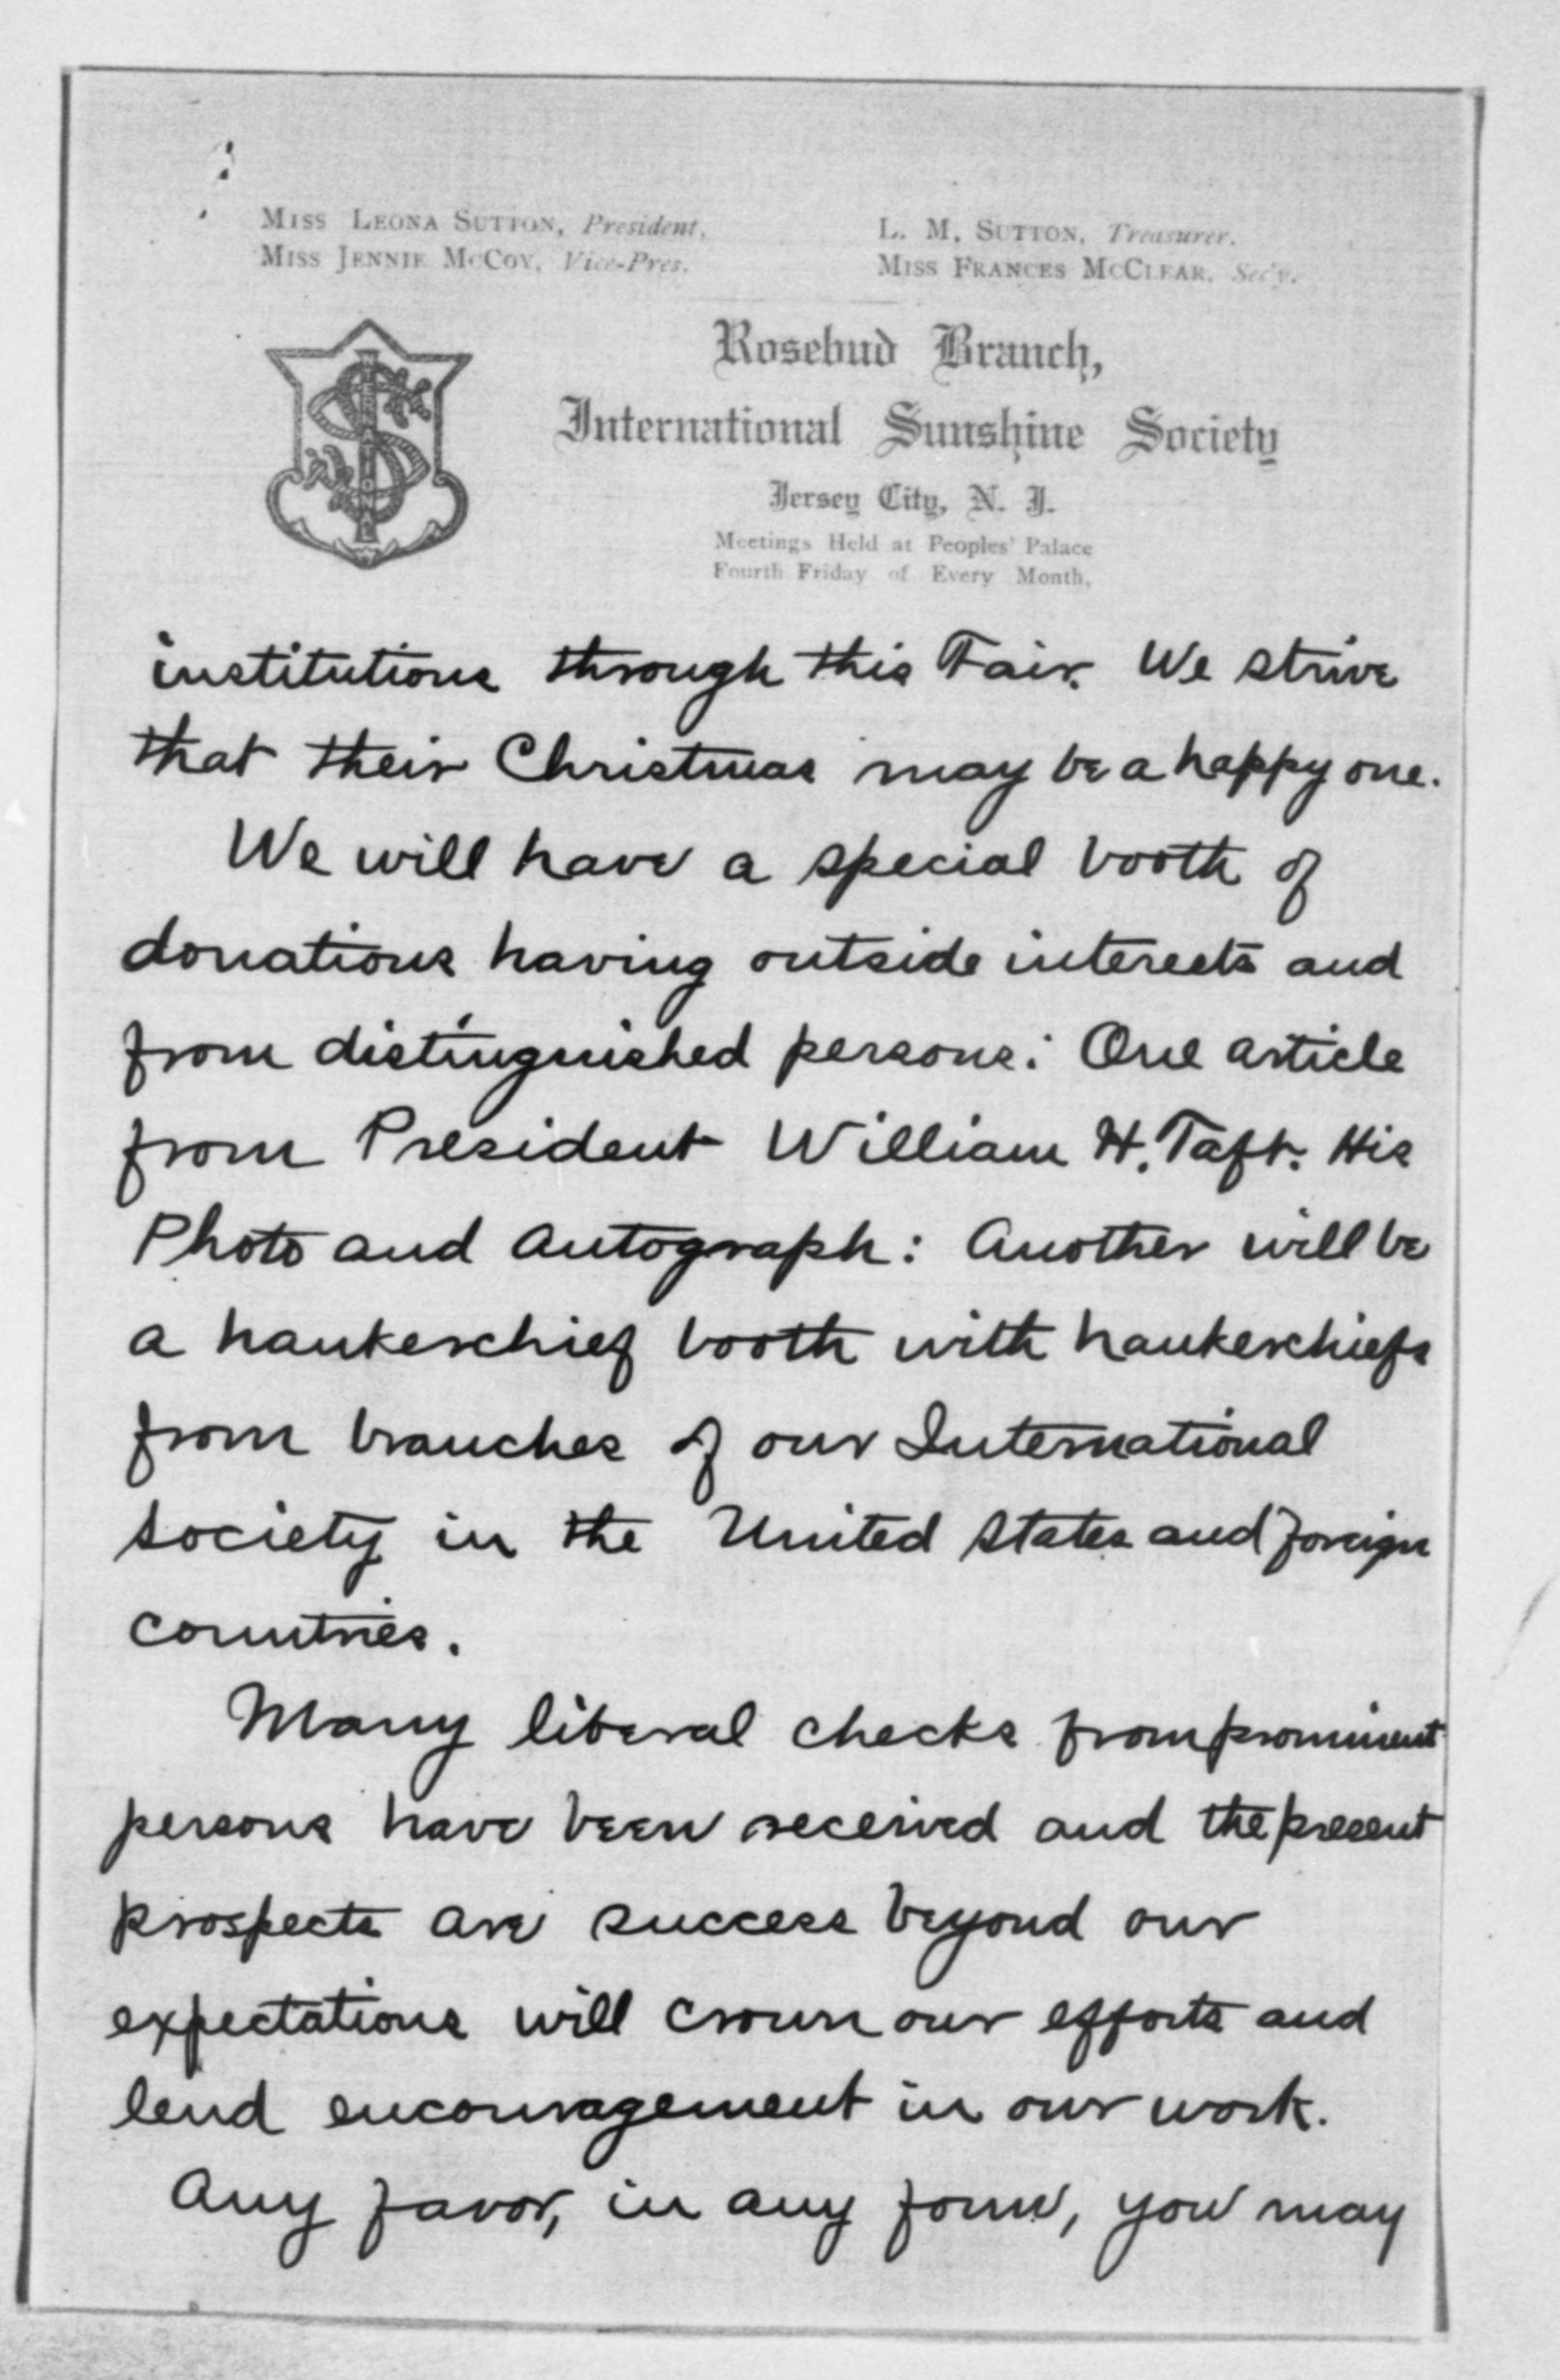 Miss Leona Sutton, President,
Miss Jennie McCoy, Vice-Pres.
L. M. Sutton, Treasurer.
Miss Frances McClear, Sec'y.
Rosebud Branch,
International Sunshine Society
Jersey City, N. J.
Meetings Held at Peoples' Palace
Fourth Friday of Every Month,
institutions through this Fair. We strive
that their Christmas may be a happy one.
We will have a special booth of
donations having outside interests and
from distinguished persons: One article
from President William H. Taft. His
Photo and Autograph: Another will be
a hankerchief booth with hankerchiefs
from branches of our International
Society in the United States and foreign
countries.
Many liberal checks from prominent
persons have been received and the present
prospects are success beyond our
expectations will crown our efforts and
lend encouragement in our work.
Any favor, in any form, you may